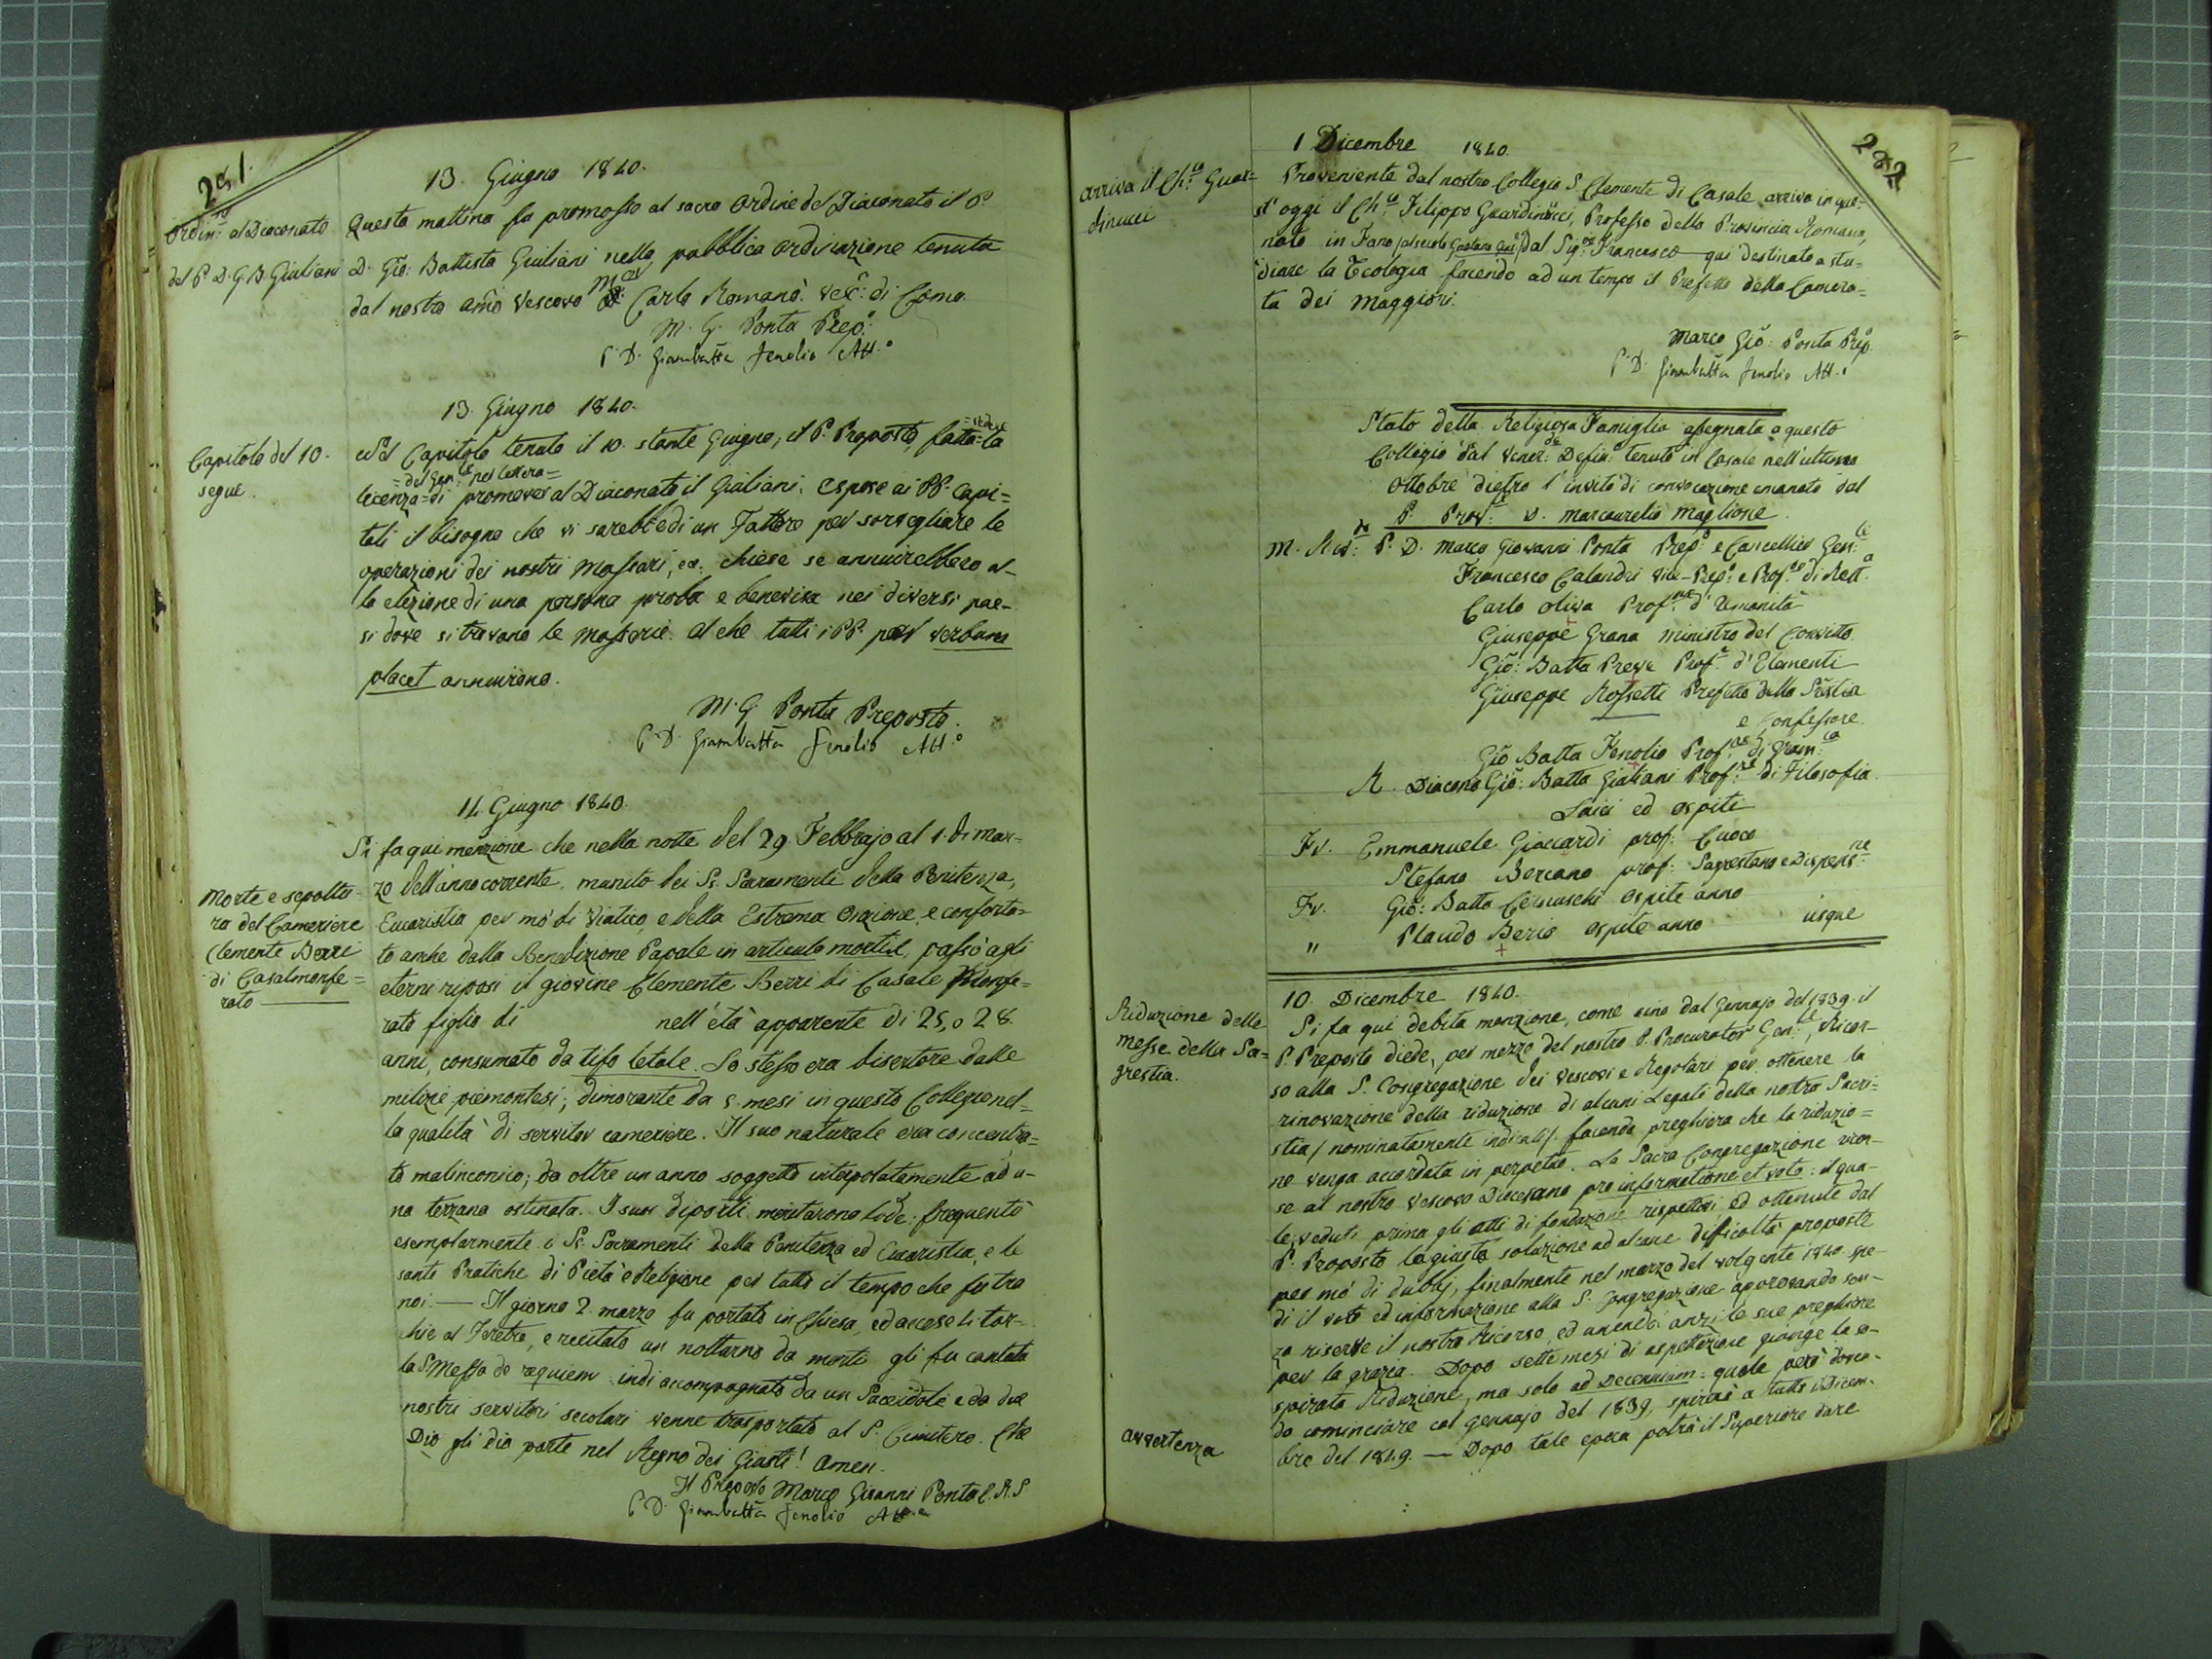 281.
Ordin.ne al Diaconato
del P. D. G. B. Giuliani
13. Giugno 1840.
Questa mattina fu promosso al sacro Ordine del Diaconato il P.
D. Gio: Battista Giuliani nella pubblica ordinazione tenuta
dal nostro amo Vescovo Carlo Romanò. Vesc: di Como.
M. G. Ponta Prep.o
P. D. Giambatta Fenolio Att.o
13. Giugno 1840.
Capitolo del 10.
segue.
Nel Capitolo tenuto il 10. stante Giugno, il P. Preposto, fatta =stendere= la
licenza =del Gen.le per lettera= di promover al Diaconato il Giuliani, espose ai PP. Capi=
toli il bisogno che vi sarebbe di un Fattore per sorvegliare le
operazioni dei nostri Massari, ec: chiese se annuirebbero al-
la elezione di una persona proba e benevisa nei diversi pae-
si dove si trovano le Masserie. Al che tutti i PP. per verbum
placet annuirono.
M. G. Ponta Preposto.
P. D. Giambatta Fenolio Att.o
14. Giugno 1840.
Morte e sepoltu-
ra del Cameriere
Clemente Berri
di Casalmonfe=
rato
Si fa qui menzione che nella notte del 29 Febbrajo al 1. di Mar-
zo dell'anno corrente, munito dei Ss. Sacramenti della Penitenza,
Eucaristia per mò di Viatico, e della Estrema Onzione, e conforta=
to anche dalla Benedizione Papale in articulo mortis, passò agli
eterni riposi il giovine Clemente Berri di Casale Monfe=
rato figlio di nell'età apparente di 25, o 28.
anni, consumato da tifo letale. Lo stesso era disertore dalle
milizie piemontesi; dimorante da 5. mesi in questo Collegio nel=
la qualità di servitor cameriere. Il suo naturale era concentra=
to malinconico; da oltre un anno soggetto interpolatamente ad u-
na terzana ostinata. I suoi diporti meritarono lode: frequentò
esemplarmente i Ss. Sacramenti della Penitenza ed Eucaristia, e le
sante Pratiche di Pietà e Religione per tutto il tempo che fu tra
noi. — Il giorno 2. marzo fu portato in Chiesa, ed accese le tor-
chie al Feretro, e recitato un notturno da morti gli fu cantata
la S. Messa de requiem: indi accompagnato da un Sacerdote e da due
nostri servitori secolari venne trasportato al S. Cimitero. Che
Dio gli dia parte nel Regno dei Giusti! Amen.
Il Preposto Marco Giovanni Ponta C.R.S
P. D. Giambatta Fenolio Att.o
282
arriva il Ch.co Guar=
dinucci
1 Dicembre 1840.
Proveniente dal nostro Collegio S. Clemente di Casale arriva in que=
st'oggi il Ch.co Filippo Guardinucci, Professo della Provincia Romana,
nato in Fano (al secolo Gaetano Gui) dal Sig.or Francesco qui destinato a stu=
diare la Teologia facendo ad un tempo il Prefetto della Camera=
ta dei Maggiori.
Marco Gio: Ponta Prep.
P. D. Giambatta Fenolio Att.o
Stato della Religiosa Famiglia assegnata a questo
Collegio dal Vener.de Defin.o tenuto in Casale nell'ultimo
ottobre dietro l'invito di convocazione emanato dal
P. Prov.le D. Marcaurelio Maglione.
M. Rev.do P. D. Marco Giovanni Ponta Prep.o e Cancellier Gen.le
Francesco Calandri Vice-Prep.o e Prof.re di Rett.a
Carlo Oliva Prof.re d'Umanità
Giuseppe Grana Ministro del Convitto.
Gio: Batta Preve Prof.e d'Elementi
Giuseppe Rossetti Prefetto della Sgstia
e Confessore.
Gio Batta Fenolio Prof.re di Gram.ca
R. Diacono Gio: Batta Giuliani Prof.re di Filosofia.
Laici ed ospiti
Fr. Emmanuele Giaccardi prof: Cuoco
Stefano Bercano prof: Sagrestano e Dispens.re
Fr. Gio: Batta Cernuschi Ospite anno
" Placido Berio ospite anno usque
10. Dicembre 1840.
Riduzione delle
messe della Sa=
grestia.
Si fa qui debita menzione, come sino dal Gennajo del 1839. il
P. Preposto diede, per mezzo del nostro P. Procurator Gen.le, Ricor-
so alla S. Congregazione dei Vescovi e Regolari per ottenere la
rinovazione della riduzione di alcuni Legati della nostra Sacri=
stia / nominatamente indicati /. facendo preghiera che la riduzio=
ne venga accordata in perpetuo. La Sacra Congregazione
se al nostro Vescovo Diocesano pro informatione et voto: il qua-
le, veduti prima gli atti di fondazione rispettivi, ed ottenute dal
P. Preposto la giusta soluzione ad alcune difficoltà proposte
per mò di dubbj, finalmente nel marzo del volgente 1840. spe-
dì il voto ed informazione alla S. Congregazione approvando sen-
za riserve il nostro Ricorso, ed unendoci anzi le sue preghiere
per la grazia. Dopo sette mesi di aspettazione giunge la o-
spirata Riduzione, ma solo ad Decennium: quale però doven-
do cominciare col gennajo del 1839, spirerà a tutto il Dicem-
bre del 1849. — Dopo tale epoca potrà il Superiore dare
avvertenza